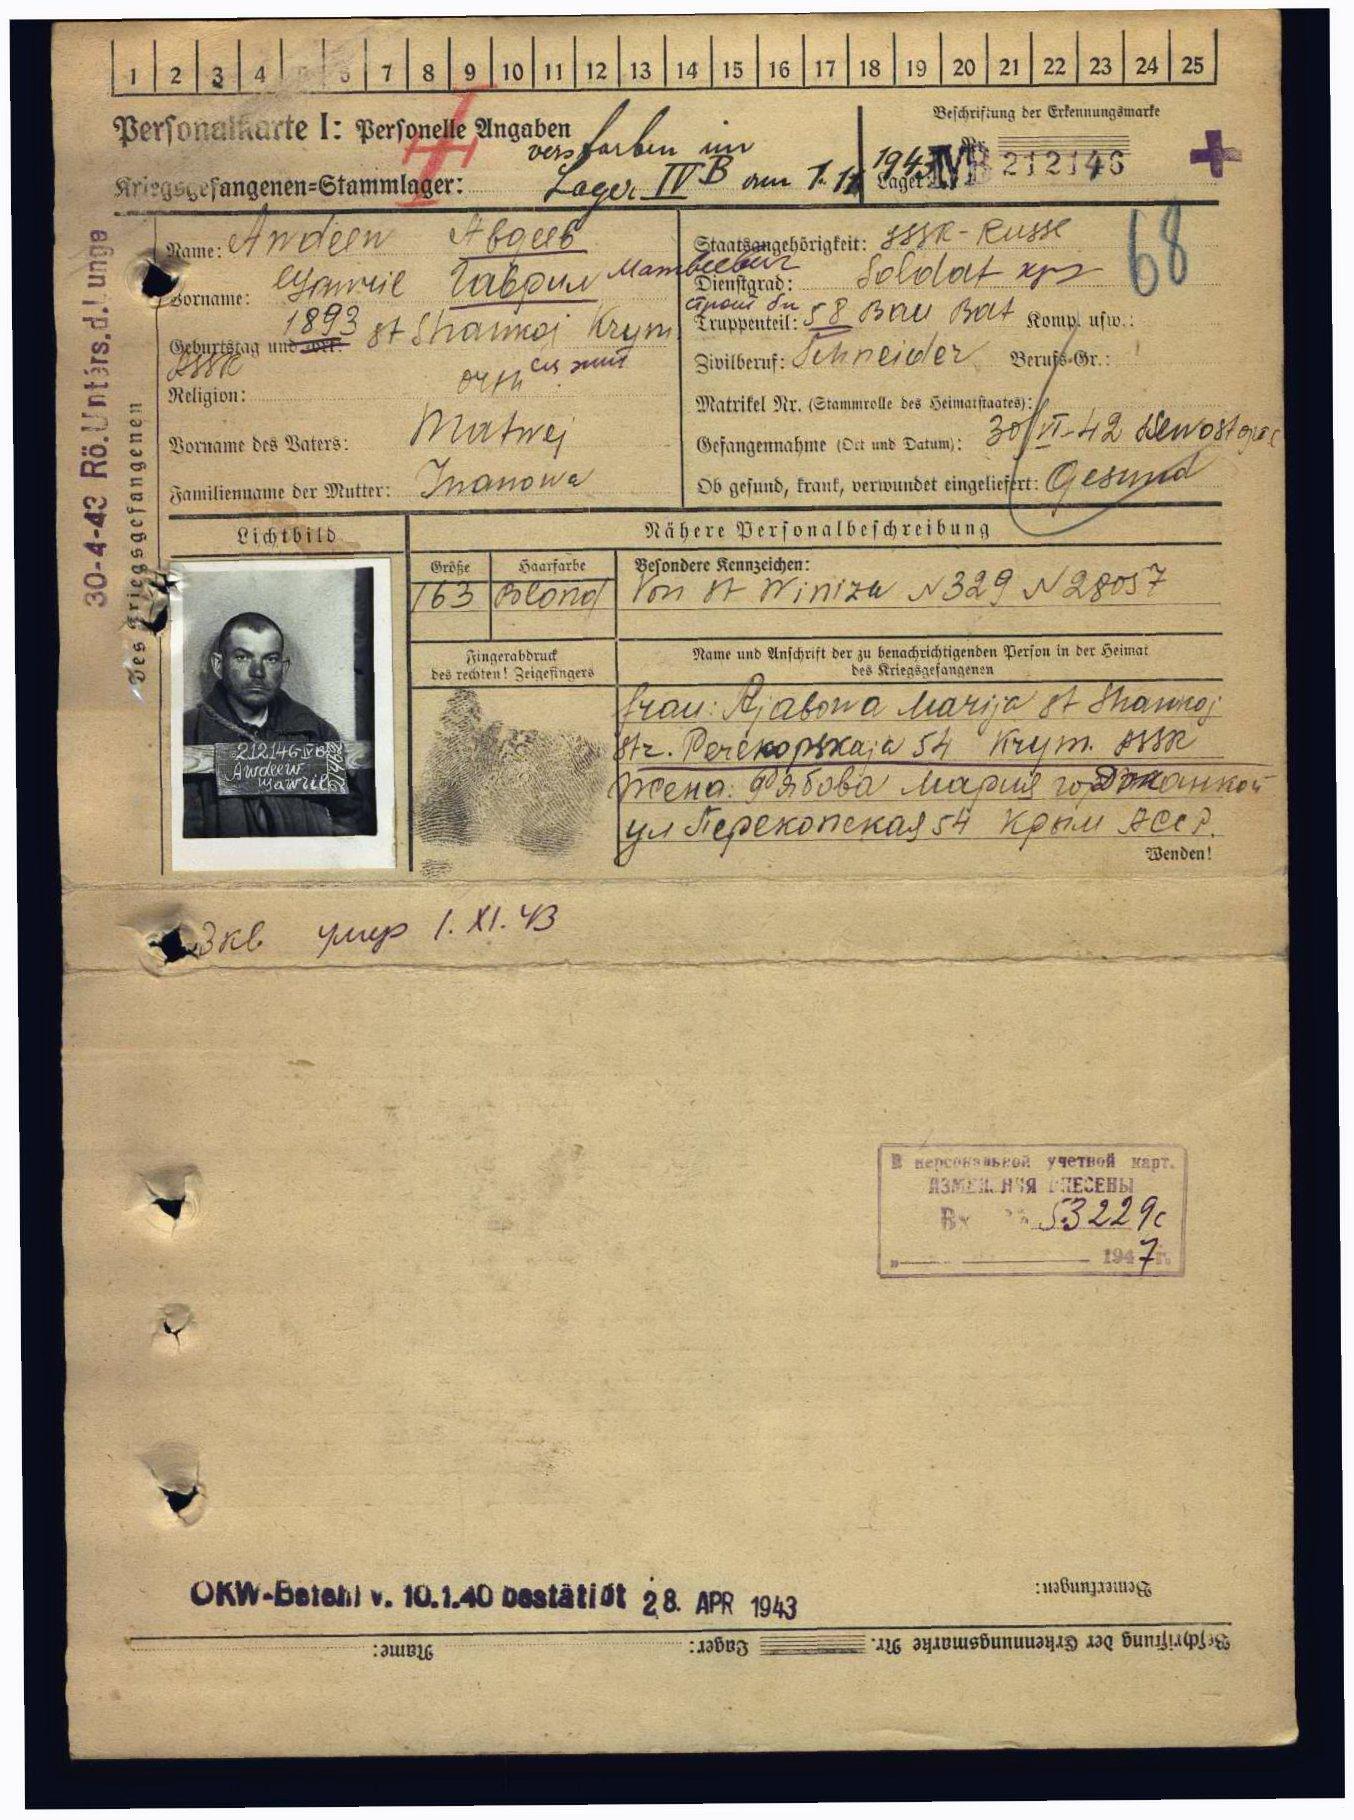 1 2 3 4 5 6 7 8 9 10 11 12 13 14 15 16 17 18 19 20 21 22 23 24 25
Personalkarte I: Personelle Angaben
verstorben im
Lager IV B am 1. 11 1943
Kriegsgefangenen=Stammlager:
Beschriftung der Erkennungsmarke
Nr. 212146
Lager: IVB
68
30-4-43 Rö.Unters.d.Lunge
des Kriegsgefangenen
Name: Awdeew Авдеев
Vorname: Gawriil Гаврил Матвеевич
Geburtstag und 1893 st Shankoj Krym
ASSR
Religion: orth
Vorname des Vaters: Matwej
Familienname der Mutter: Iwanowa
Staatsangehörigkeit: SSSR-Russe
Dienstgrad: Soldat кр
строит бн
Truppenteil: 58 Bau Bat Komp. usw.:
Zivilberuf: Schneider Berufs-Gr.:
Matrikel Nr. (Stammrolle des Heimatstaates):
Gefangennahme (Ort und Datum): 30/VI-42
Ob gesund, krank, verwundet eingeliefert: Gesund
Lichtbild
212146 IVB
Awdeew
Gawriil
Nähere Personalbeschreibung
Größe Haarfarbe Besondere Kennzeichen:
163 Blond Von st Winiza N 329 N 28057
Fingerabdruck
des rechten! Zeigefingers
Name und Anschrift der zu benachrichtigenden Person in der Heimat
des Kriegsgefangenen
frau: Rjabowa Marija st Shankoj
str. Perekopskaja 54 Krym. ASSR
Жена: Рябова Мария гор Джанкой
ул Перекопская 54 Крым АССР.
Wenden!
умер 1. XI. 43
В персональной учетной карт.
ИЗМЕНЕНИЯ ВНЕСЕНЫ
Вх 53229с
1947 г.
OKW-Befehl v. 10.1.40 bestätigt 28. APR 1943
Bemerkungen:
Beschriftung der Erkennungsmarke Nr. Lager: Name: